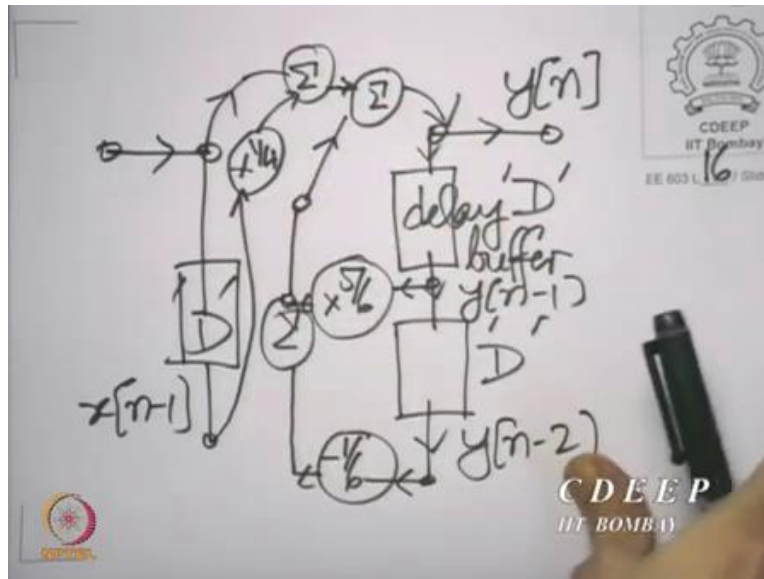 Σ
Σ
y[n]
x 1/4
delay 'D'
buffer
x 5/6
y(n-1)
'D'
Σ
'D'
x[n-1]
-1/6
y[n-2)
CDEEP
IIT Bombay
16
EE 603 L / Slid
NPTEL
CDEEP
IIT BOMBAY